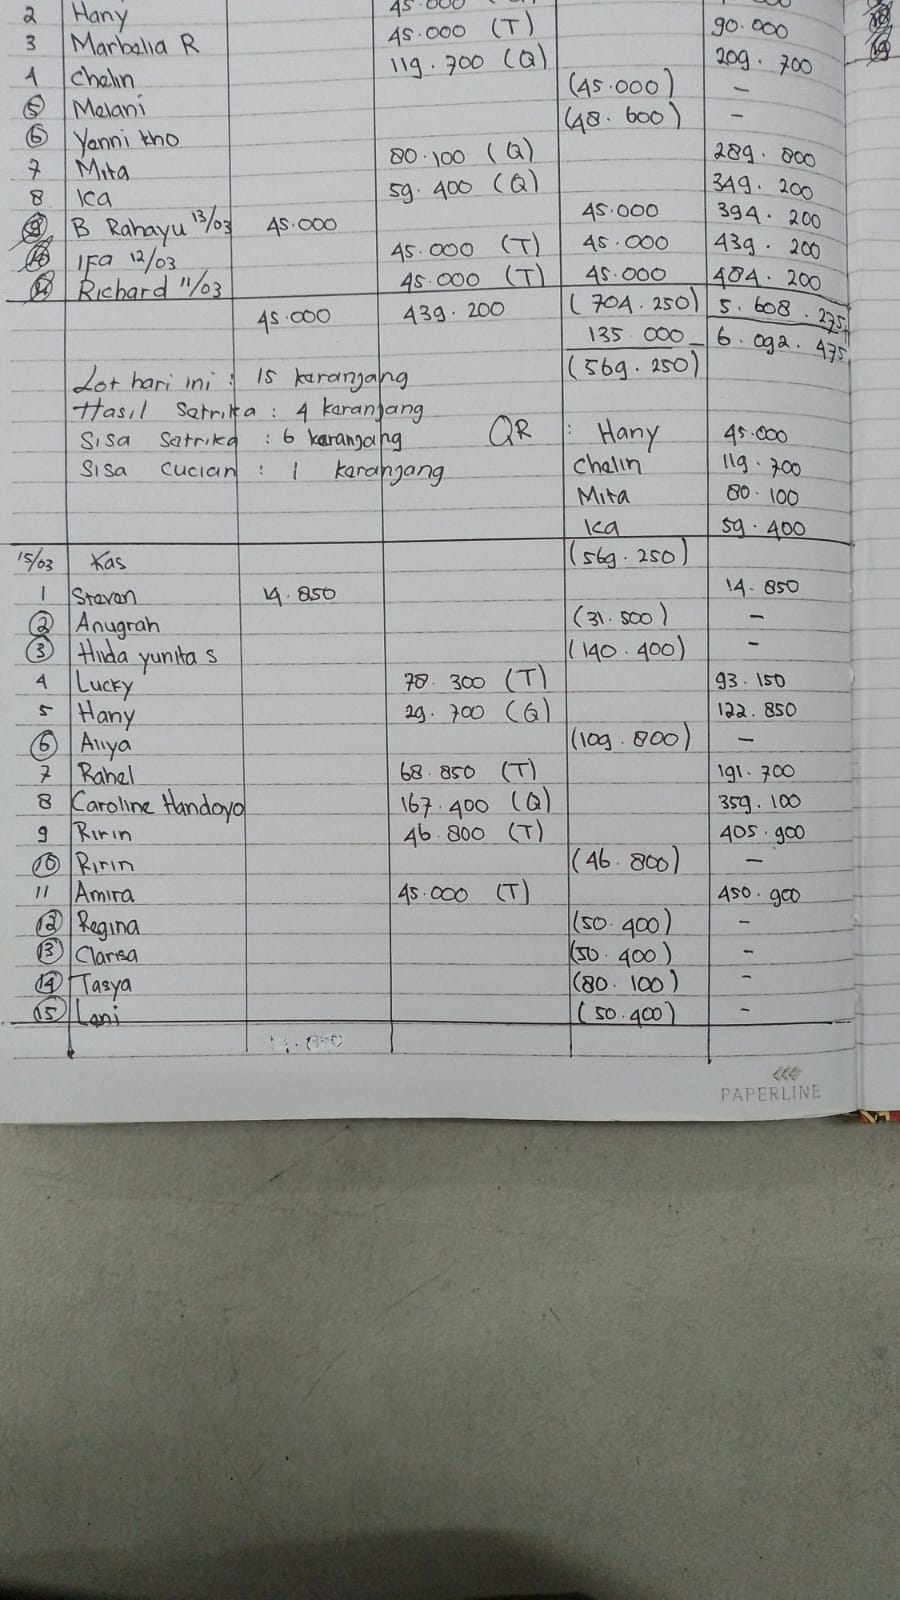 2 Hany 45.000
3 Marbelia R 45.000 (T) 90.000
4 Chelin 119.700 (Q) 209.700
5 Melani (45.000) -
6 Yenni kho (48.600) -
7 Mita 80.100 (Q) 289.800
8 Ica 59.400 (Q) 349.200
9 B Rahayu 13/03 45.000 45.000 394.200
IFA 12/03 45.000 (T) 45.000 439.200
Richard 11/03 45.000 (T) 45.000 484.200
45.000 439.200 (704.250) 5.608.275
135.000 6.092.475
(569.250)
Lot hari ini : 15 keranjang
Hasil Satrika : 4 keranjang
Sisa Satrika : 6 keranjang QR : Hany 45.000
Sisa cucian : 1 keranjang Chelin 119.700
Mita 80.100
Ica 59.400
15/03 Kas (569.250)
1 Steven 14.850 14.850
2 Anugrah (31.500) -
3 Hilda yunita s (140.400) -
4 Lucky 78.300 (T) 93.150
5 Hany 29.700 (Q) 122.850
6 Aliya (109.800) -
7 Rahel 68.850 (T) 191.700
8 Caroline Handoyo 167.400 (Q) 359.100
9 Ririn 46.800 (T) 405.900
10 Ririn (46.800) -
11 Amira 45.000 (T) 450.900
12 Regina (50.400) -
13 Clarisa (50.400) -
14 Tasya (80.100) -
15 Leni (50.400) -
PAPERLINE